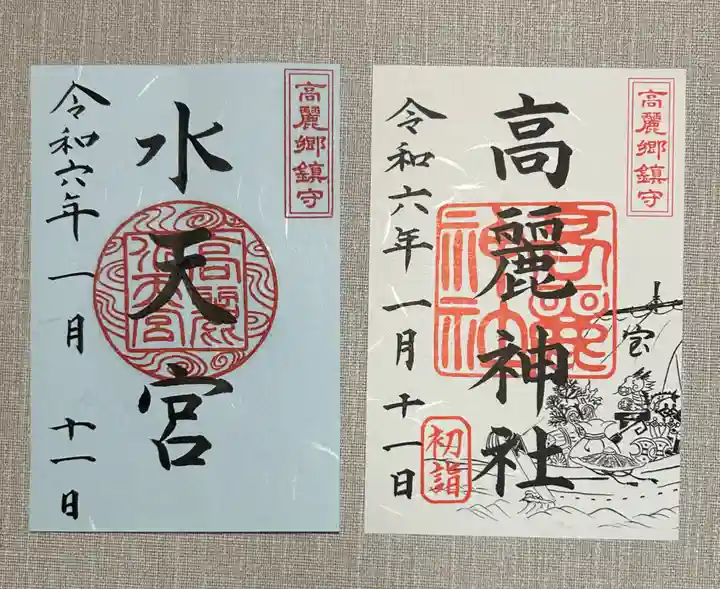 高麗郷鎮守
水天宮
令和六年一月十一日
高麗郷鎮守
高麗神社
高麗神社
令和六年一月十一日
初詣
宝